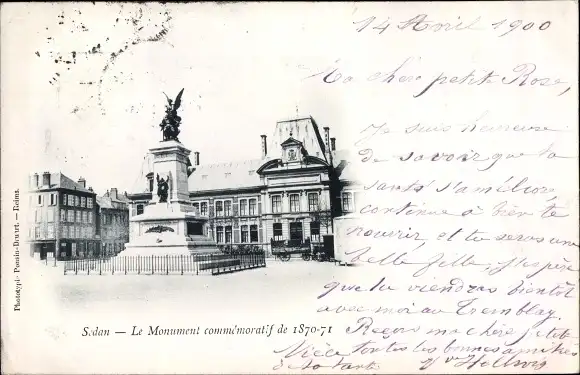 14 Avril 1900
Ma chère petite Rose,
Je suis heureuse
de savoir que ta
santé s'améliore
continue à bien te
nourrir, et tu seras une
belle fille, j'espère
que tu viendras bientôt
avec moi au Tremblay.
Reçois ma chère petite
Nièce toutes les bonnes amitiés
de ta tante
Sedan — Le Monument commémoratif de 1870-71
Phototypie Ponsin-Druart. — Reims.